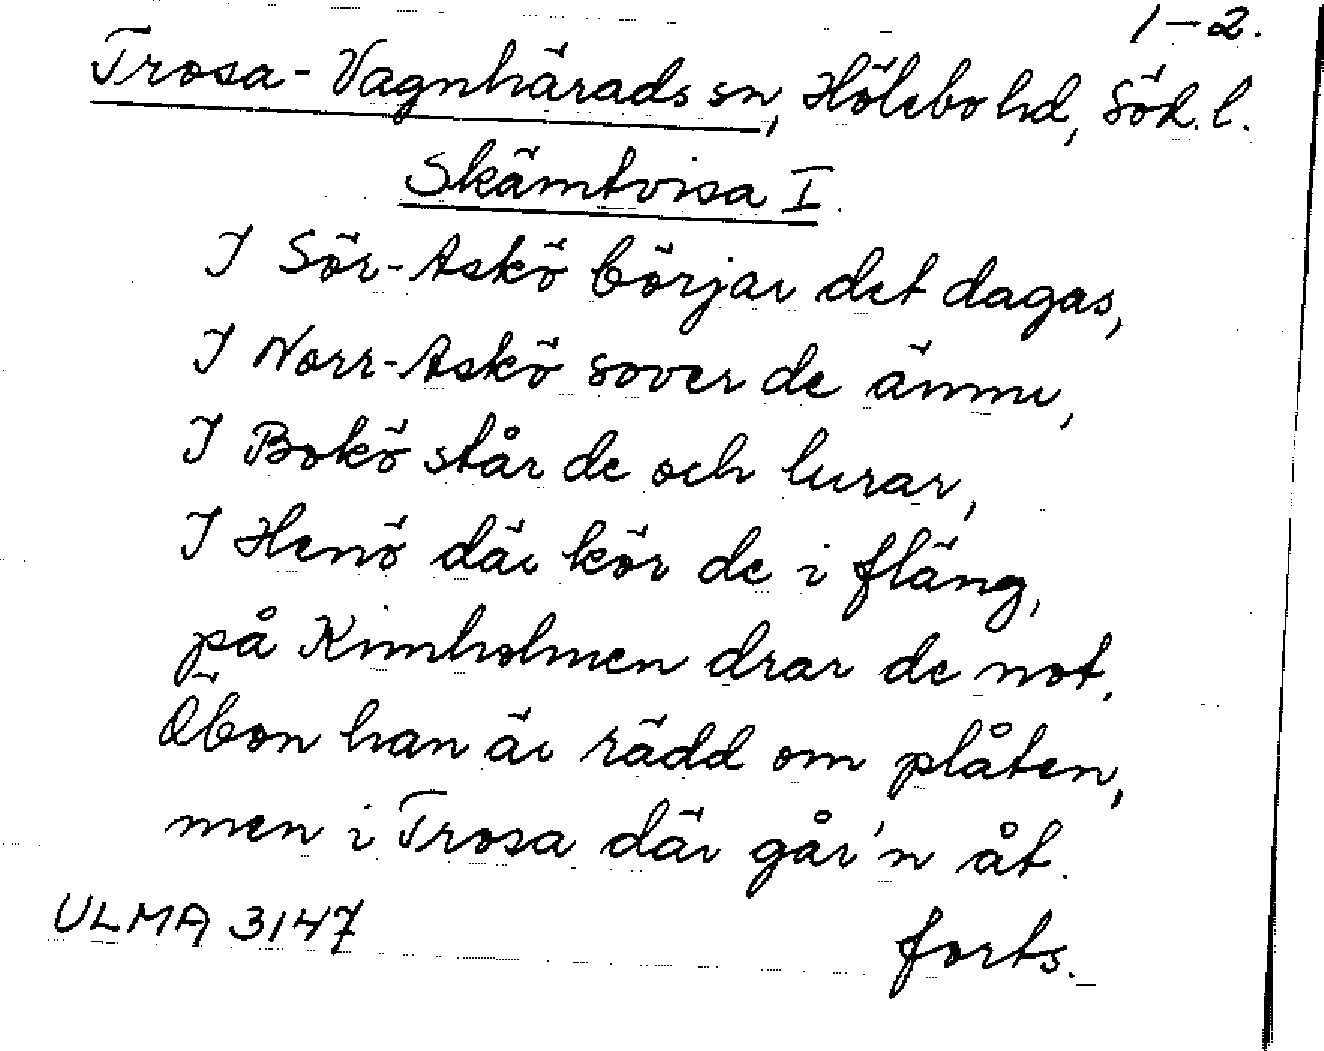 1-2.
Trosa-Vagnhärads sn, Hölebo hd, Söd. l.
Skämtvisa I.
I Sör-Askö börjar det dagas,
I Norr-Askö sover de ännu,
I Bokö står de och lurar,
I Henö där kör de i fläng,
på Kimholmen drar de not.
Öbon han är rädd om plåten,
men i Trosa där går'n åt.
ULMA 3147
forts.